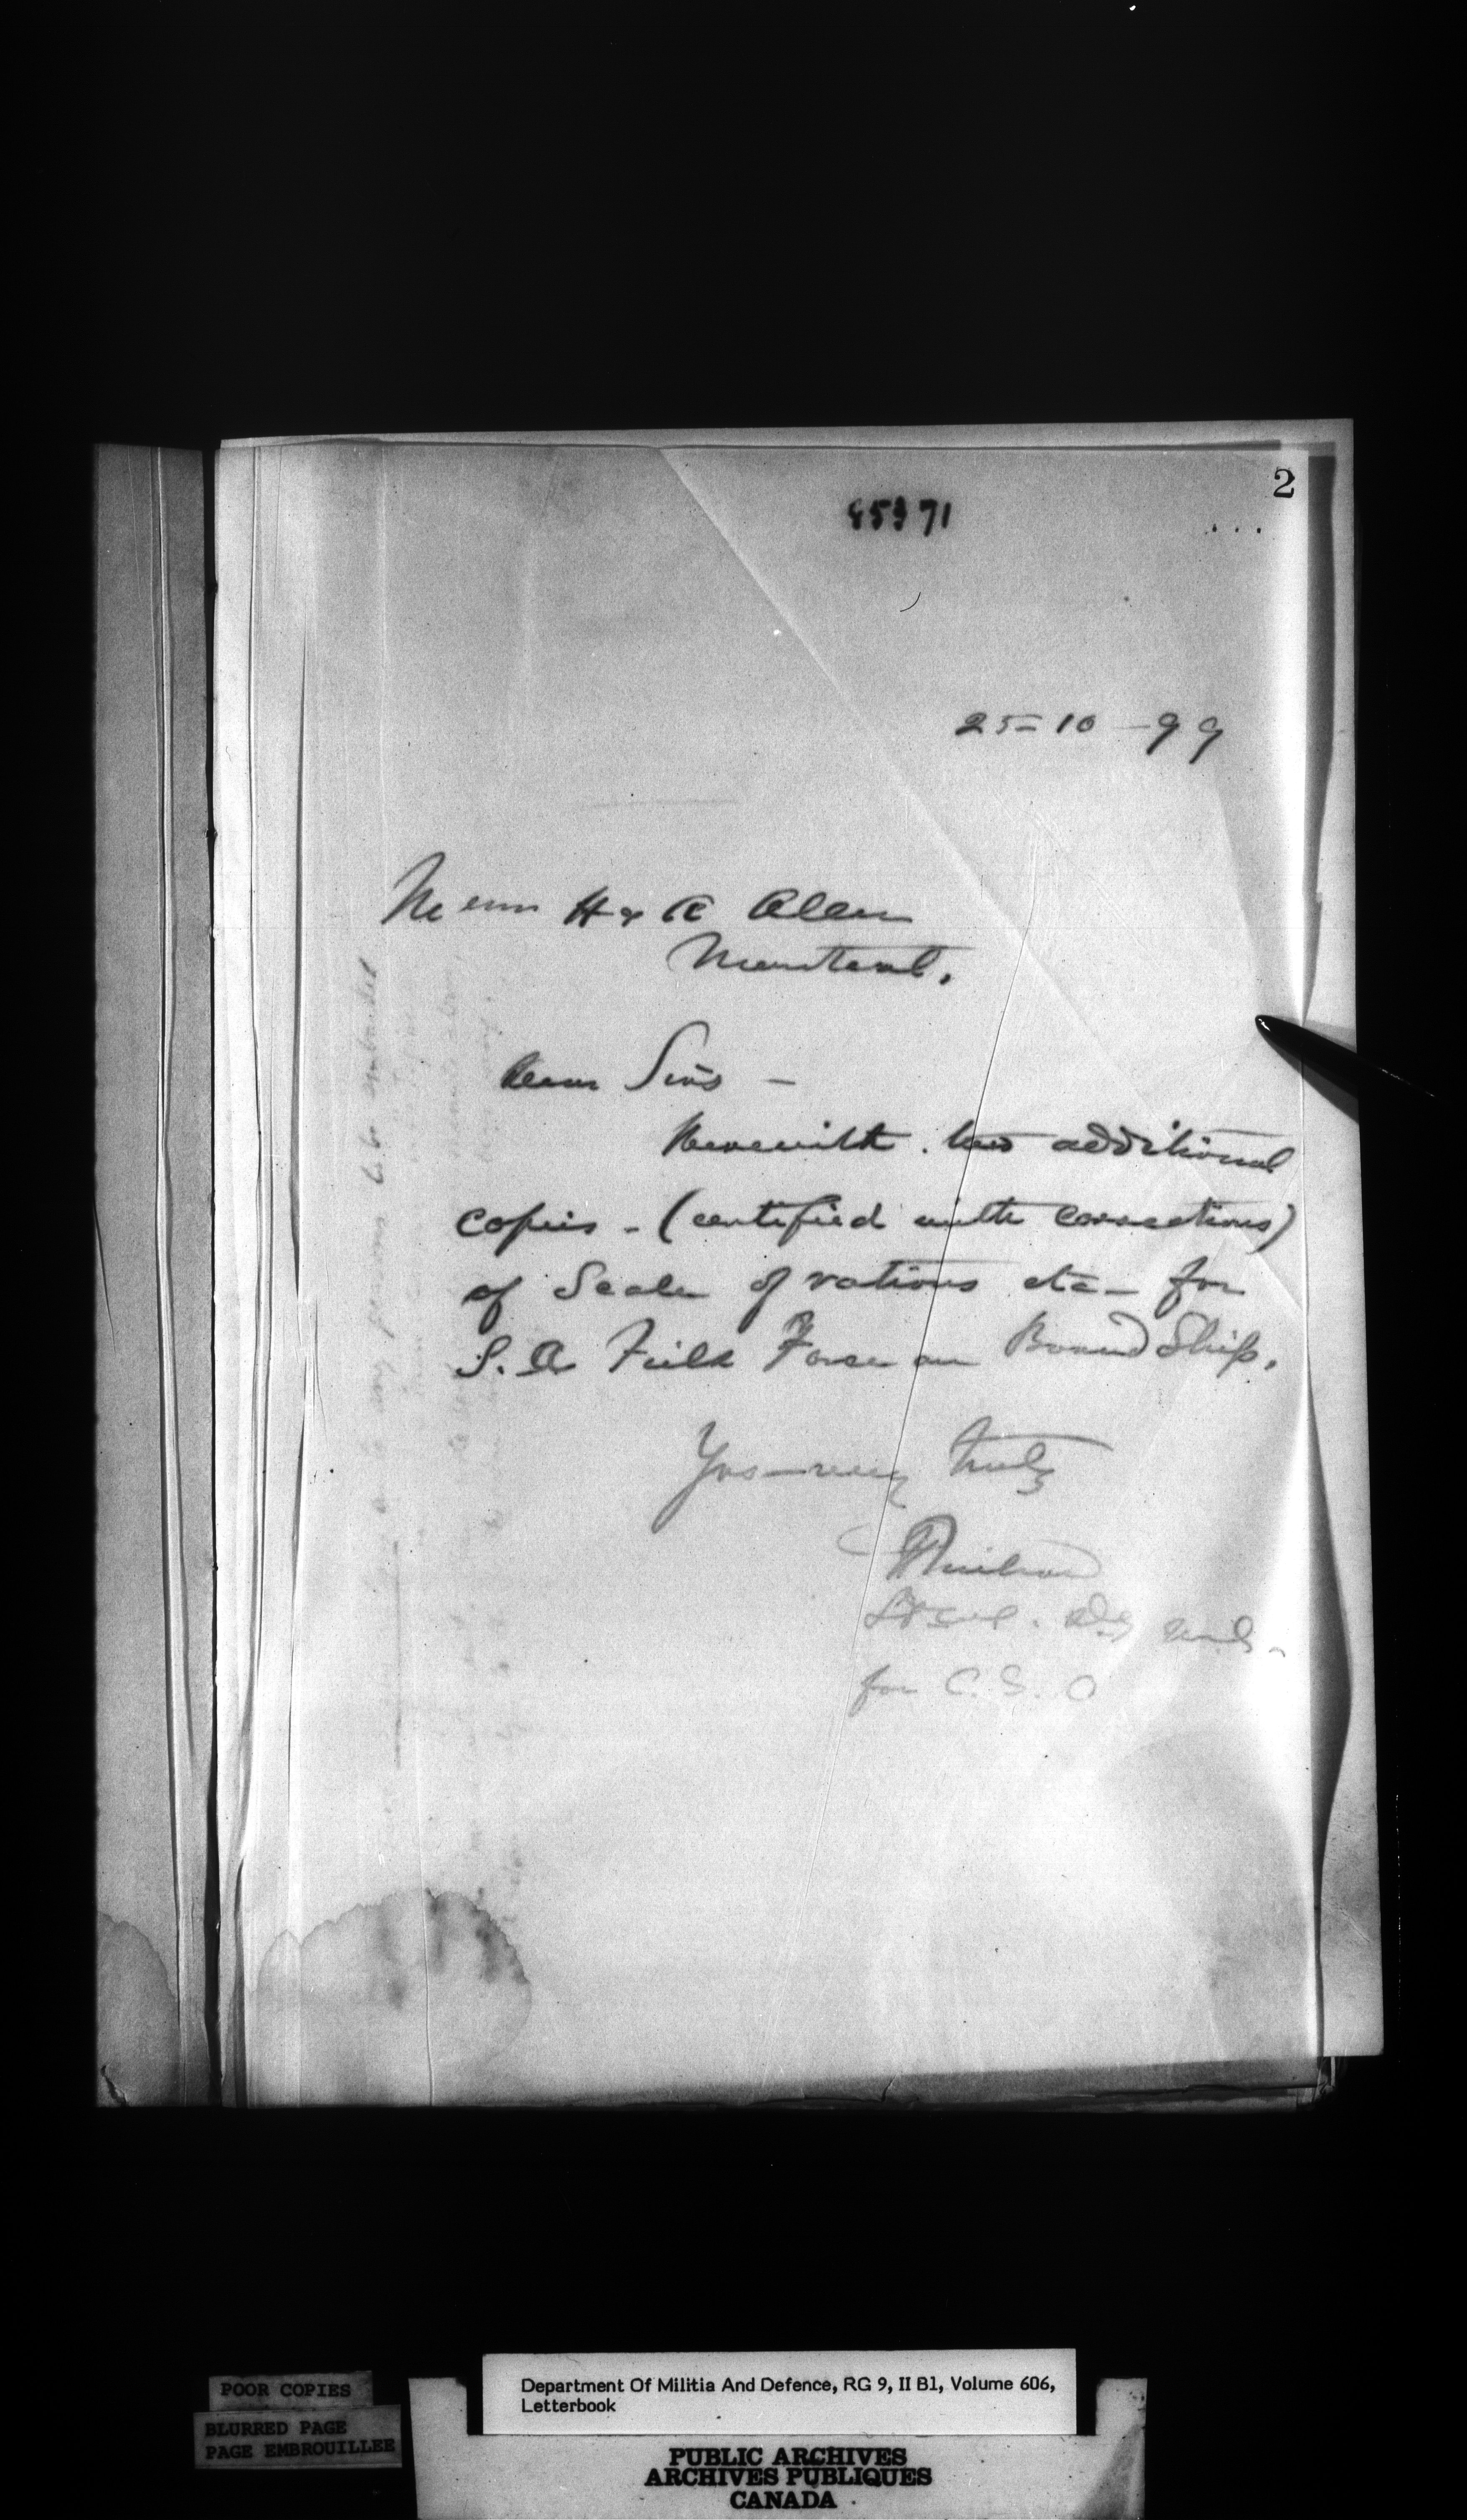 2
85371
25-10-99
Messrs H & A Allan
Montreal.
Dear Sirs -
Herewith two additional
copies - (certified with corrections)
of Scale of rations etc - for
S. A. Field Force on Board Ship.
Yrs very truly
Lt Col.
for C. S. O
to be embarked
POOR COPIES
BLURRED PAGE
PAGE EMBROUILLEE
Department Of Militia And Defence, RG 9, II B1, Volume 606,
Letterbook
PUBLIC ARCHIVES
ARCHIVES PUBLIQUES
CANADA